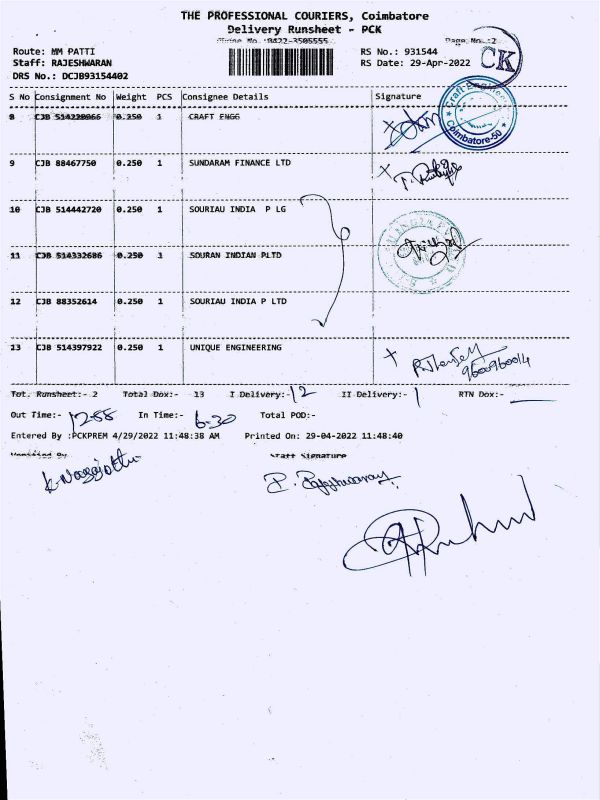 THE PROFESSIONAL COURIERS, Coimbatore
Delivery Runsheet - PCK
Phone No.:0422-3505555 Page No.:2
Route: MM PATTI RS No.: 931544
Staff: RAJESHWARAN RS Date: 29-Apr-2022
DRS No.: DCJB93154402
CK
S No Consignment No Weight PCS Consignee Details Signature
8 CJB 514228966 0.250 1 CRAFT ENGG
Craft Engineers
Coimbatore-50
9 CJB 88467750 0.250 1 SUNDARAM FINANCE LTD
10 CJB 514442720 0.250 1 SOURIAU INDIA P LG
11 CJB 514332686 0.250 1 SOURAN INDIAN PLTD
12 CJB 88352614 0.250 1 SOURIAU INDIA P LTD
13 CJB 514397922 0.250 1 UNIQUE ENGINEERING
9600960014
Tot. Runsheet:- 2 Total Dox:- 13 I Delivery:- 12 II Delivery:- 1 RTN Dox:-
Out Time:- 12-55 In Time:- 6-30 Total POD:-
Entered By :PCKPREM 4/29/2022 11:48:38 AM Printed On: 29-04-2022 11:48:40
Verified By Staff Signature